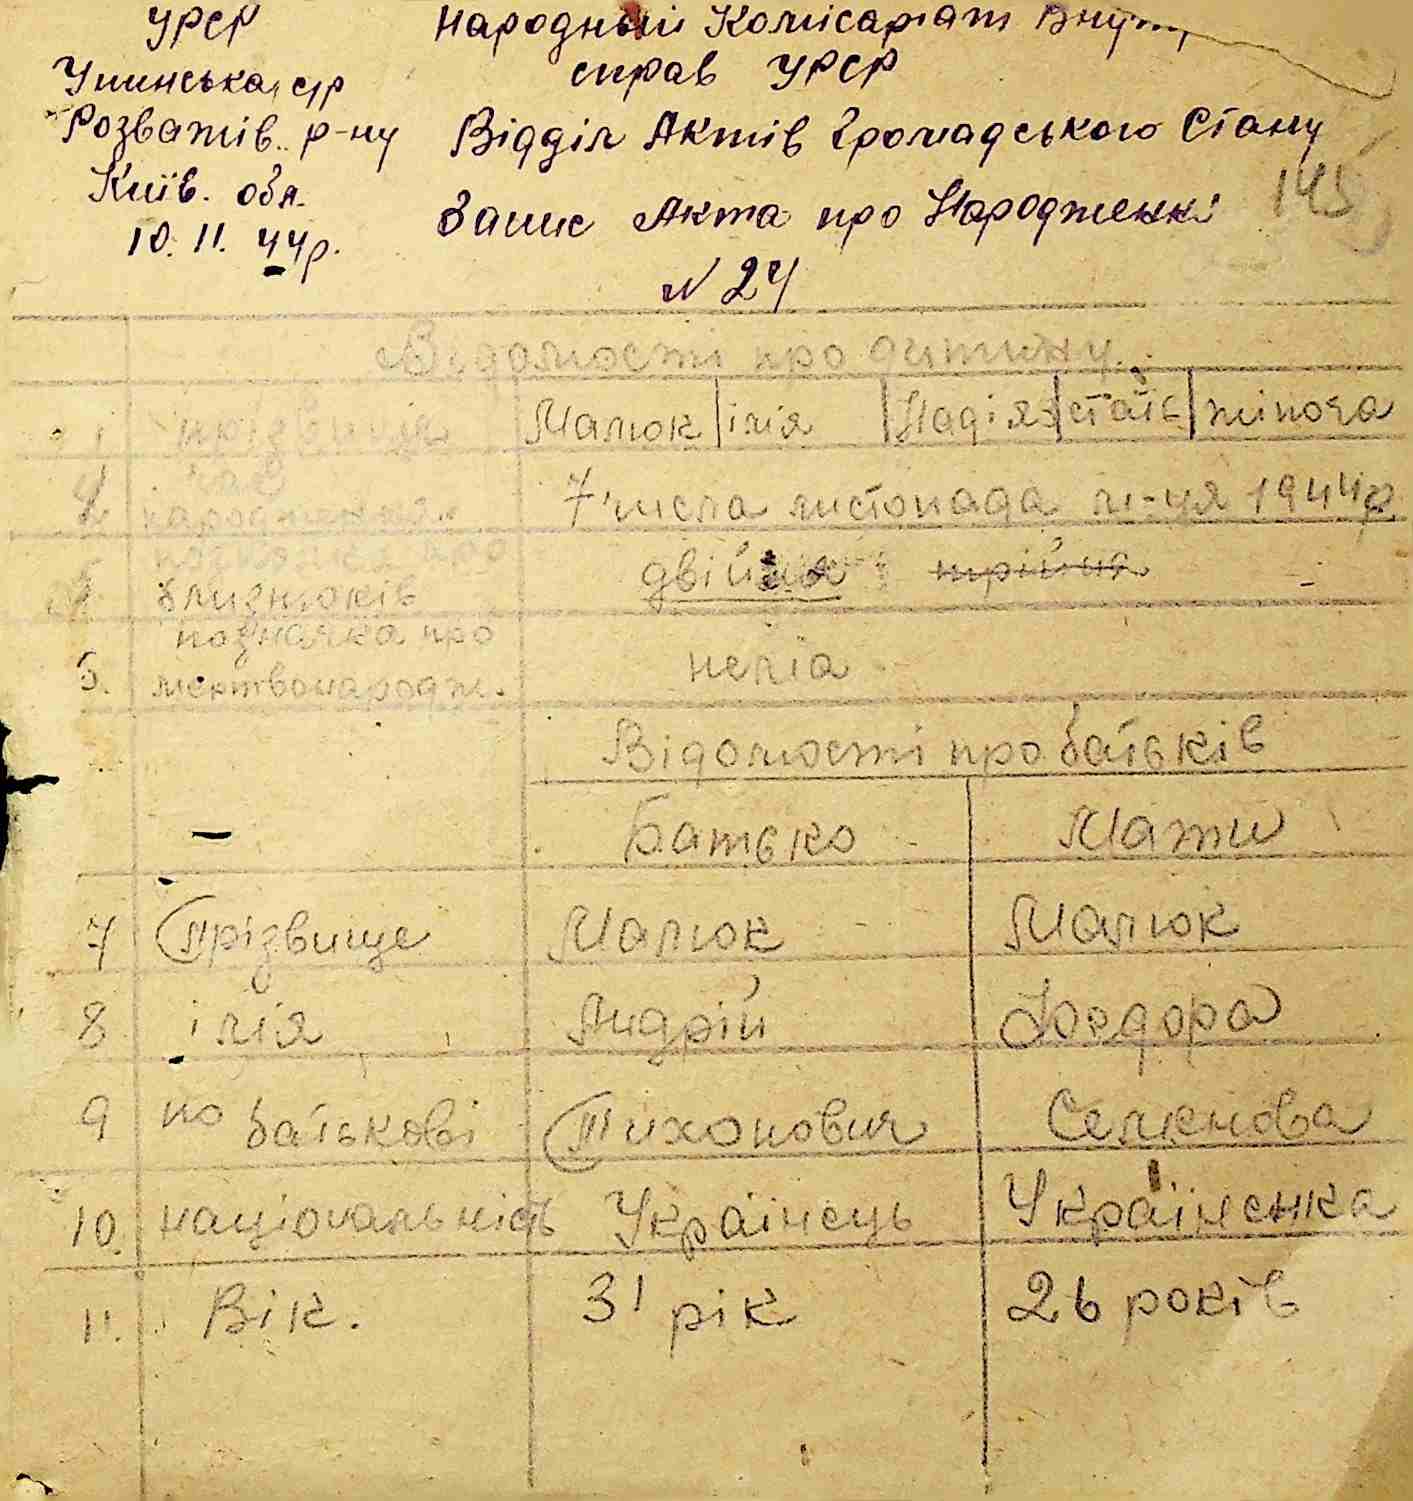 УРСР
Унинська с/р
Розватів. р-ну
Київ. обл.
10. 11. 44р.
Народный Комісаріат Внут.
справ УРСР
Відділ Актів Громадського Стану
Запис Акта про Народження
145
N 24
Відомості про дитину
1 прізвище Малюк імія Надія стать жіноча
час
народження 7 числа листопада м-ця 1944р
позначка про
близнюків двійня трійня -
позначка про
5. мертвонародж. нема
Відомості про батьків
- Батько Мати
7 Прізвище Малюк Малюк
8 імія Андрій Хведора
9 по батькові Тихонович Семенова
10. національність Українець Українєнка
11. Вік. 31 рік 26 років